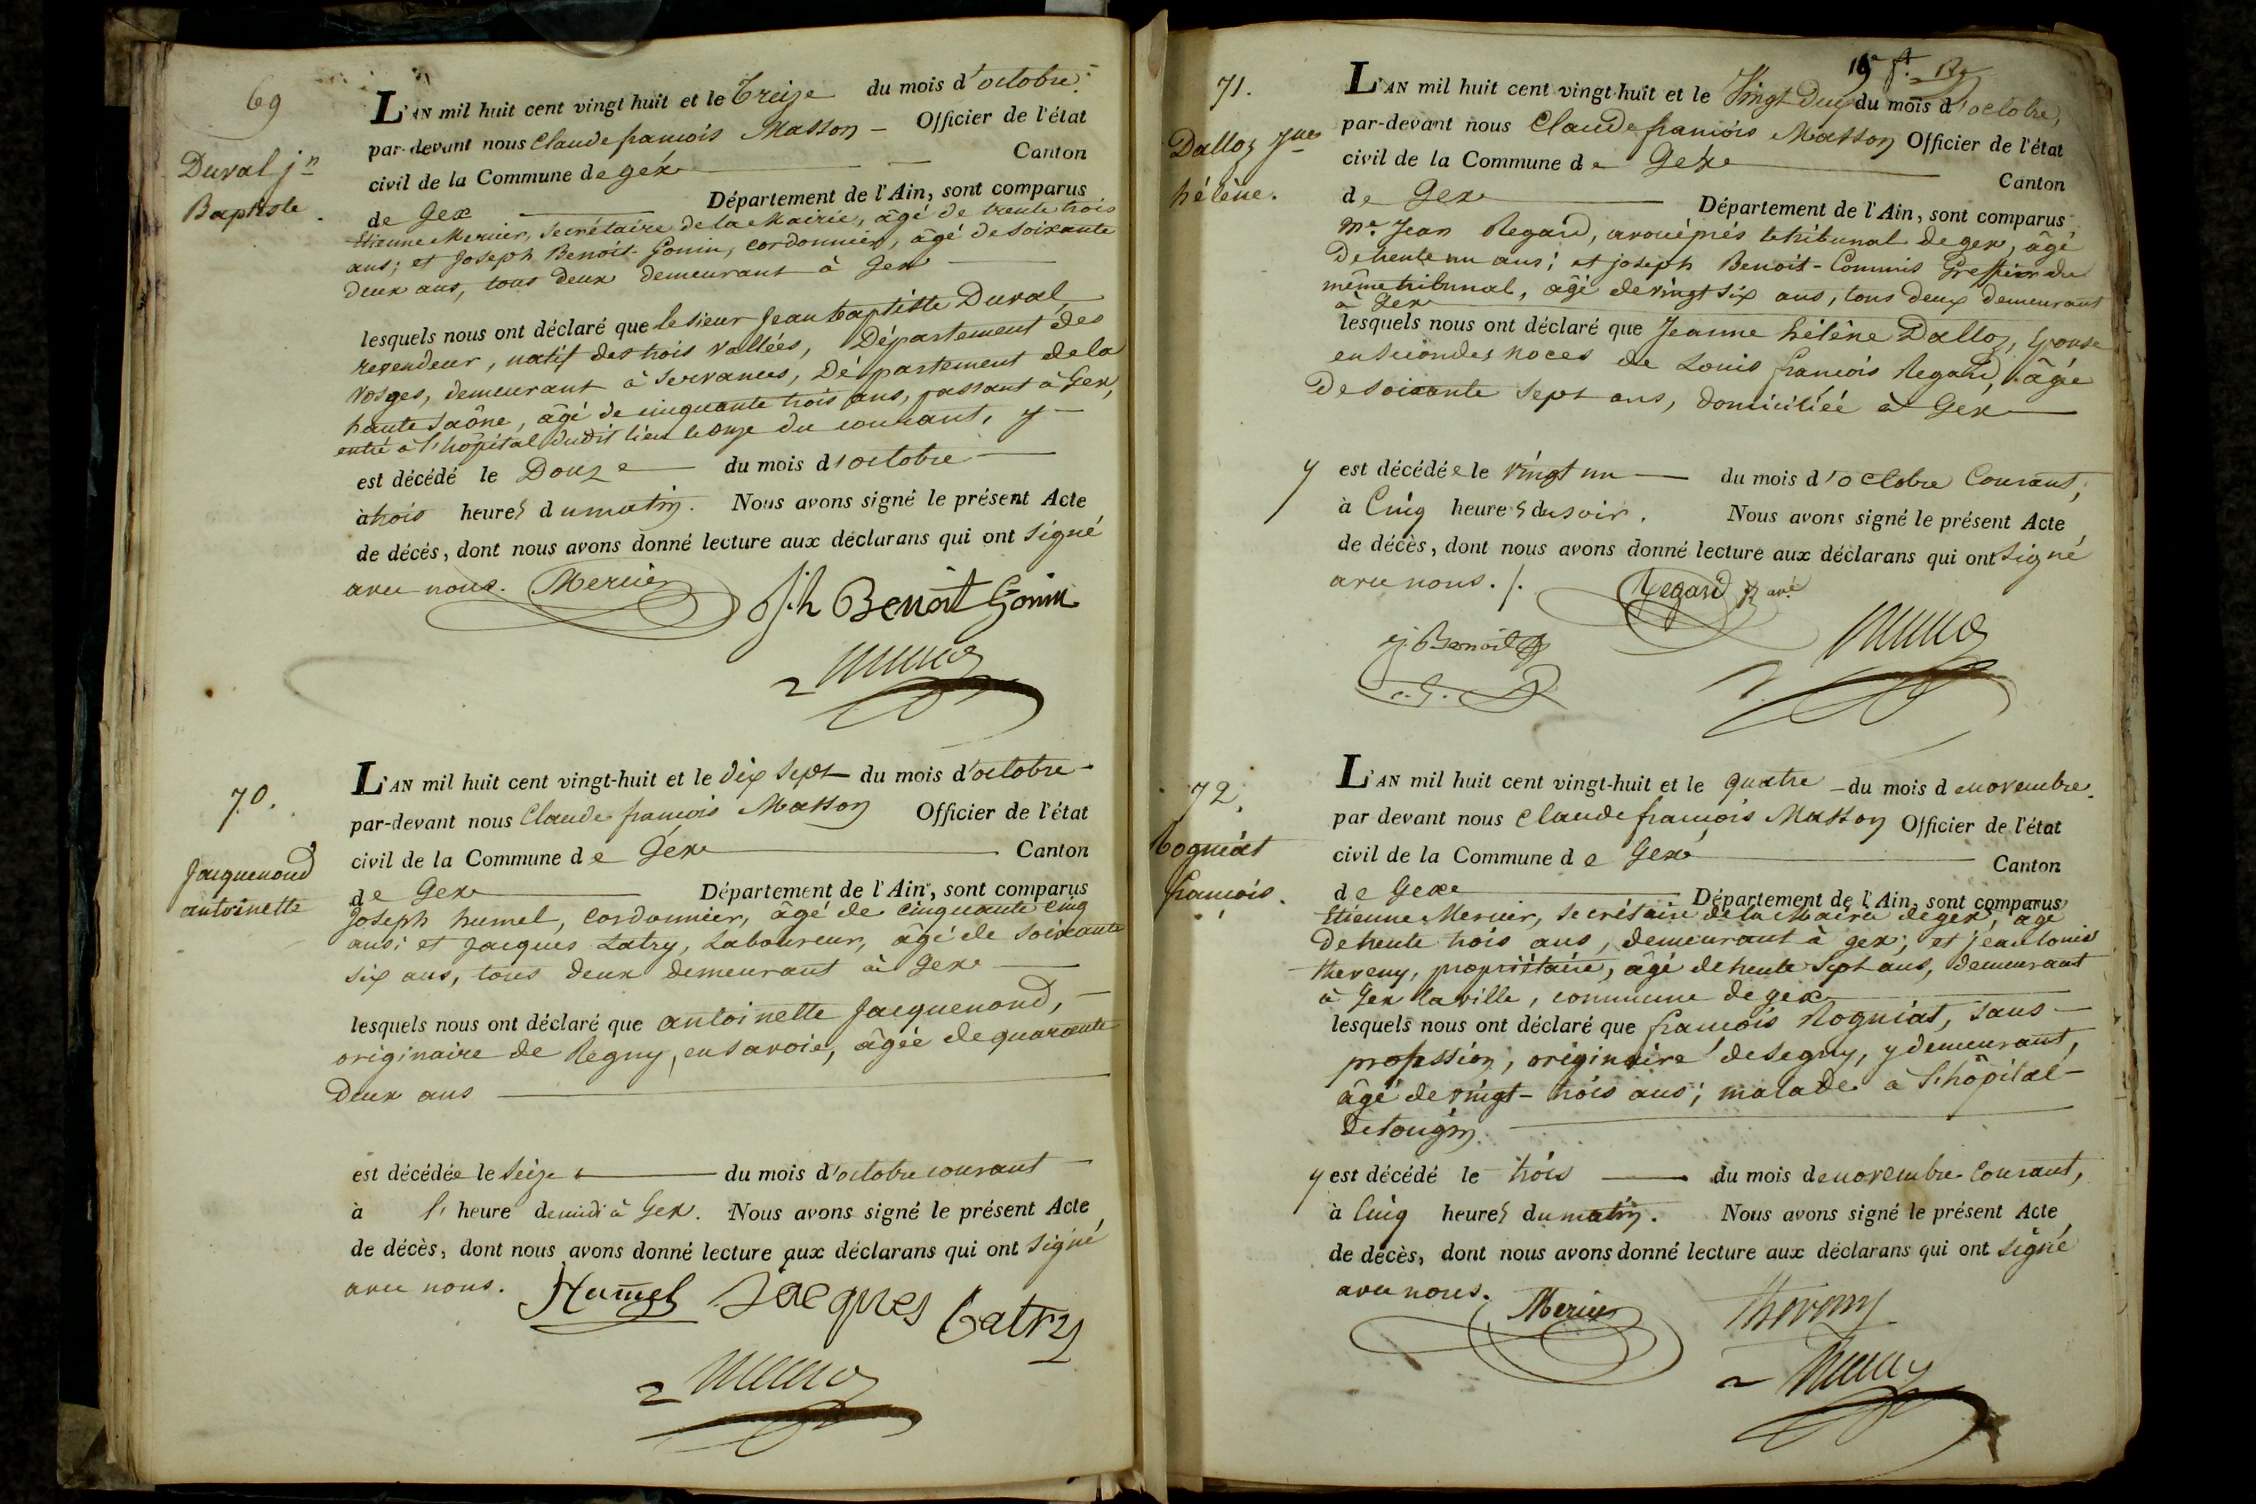 69
Duval jn
Baptiste.
L'AN mil huit cent vingt huit et le Treize du mois d'octobre.
par-devant nous Claude françois Masson — Officier de l'état
civil de la Commune de gex Canton
de Gex Département de l'Ain, sont comparus
Etienne Mercier, secrétaire de la Mairie, âgé de trente trois
ans; et Joseph Benoit-Gonin, cordonnier, âgé de soixante
deux ans, tous deux demeurant à Gex
lesquels nous ont déclaré que le sieur Jean baptiste Duval,
revendeur, natif des trois vallées, Département des
Vosges, demeurant à Servances, Département de la
haute Saône, âgé de cinquante trois ans, passant à Gex,
entré à l'hôpital dudit lieu le onze du courant, y —
est décédé le Douze du mois d'octobre
à trois heures du matin. Nous avons signé le présent Acte
de décés, dont nous avons donné lecture aux déclarans qui ont signé
avec nous. Mercier Jh Benoit Gonin
70.
Jacquenoud
antoinette
L'AN mil huit cent vingt-huit et le dix sept du mois d'octobre
par-devant nous Claude françois Masson Officier de l'état
civil de la Commune de Gex Canton
de Gex Département de l'Ain, sont comparus
Joseph humel, Cordonnier, âgé de cinquante cinq
ans; et Jacques Latry, Laboureur, âgé de soixante
six ans, tous deux demeurant à Gex
lesquels nous ont déclaré que antoinette Jacquenoud,
originaire de Regny, en savoie, âgée de quarante
Deux ans
est décédée le seize du mois d'octobre courant
à l' heure de midi à Gex. Nous avons signé le présent Acte
de décès, dont nous avons donné lecture aux déclarans qui ont signé
avec nous. Humel Jacques Latry
71.
Dalloz Jnne
hélène.
L'AN mil huit cent vingt-huit et le Vingt Deux du mois d'octobre,
par-devant nous Claude françois Masson Officier de l'état
civil de la Commune de Gex Canton
de Gex Département de l'Ain, sont comparus
Me. Jean Regard, avoué près le tribunal de gex, âgé
De trente un ans; et joseph Benoit-Commis Greffier du
même tribunal, âgé de vingt six ans, tous deux demeurant
à Gex
lesquels nous ont déclaré que Jeanne hélène Dalloz, Epouse
en secondes noces de Louis françois Regard, âgée
De soixante sept ans, domiciliéé à Gex
y est décédée le vingt un du mois d'octobre Courant,
à Cinq heures du soir. Nous avons signé le présent Acte
de décès, dont nous avons donné lecture aux déclarans qui ont signé
avec nous. /. Regard avé
j. Benoit
c. G.
72.
Rogniat
françois.
L'AN mil huit cent vingt-huit et le quatre du mois de novembre.
par devant nous Claude françois Masson Officier de l'état
civil de la Commune de Gex Canton
de Gex Département de l'Ain, sont comparus
Etienne Mercier, secrétaire de la Mairie de gex, âgé
De trente trois ans, demeurant à gex; et jean louis
theveny, propriétaire, âgé de trente sept ans, demeurant
à Gex la ville, commune de gex
lesquels nous ont déclaré que françois Rogniat, sans —
profession, originaire de segny, y demeurant,
âgé de vingt-trois ans; malade à l'hôpital
De tougin
y est décédé le trois du mois de novembre Courant,
à Cinq heures du matin. Nous avons signé le présent Acte
de décès, dont nous avons donné lecture aux déclarans qui ont signé
avec nous. Mercier Theveny